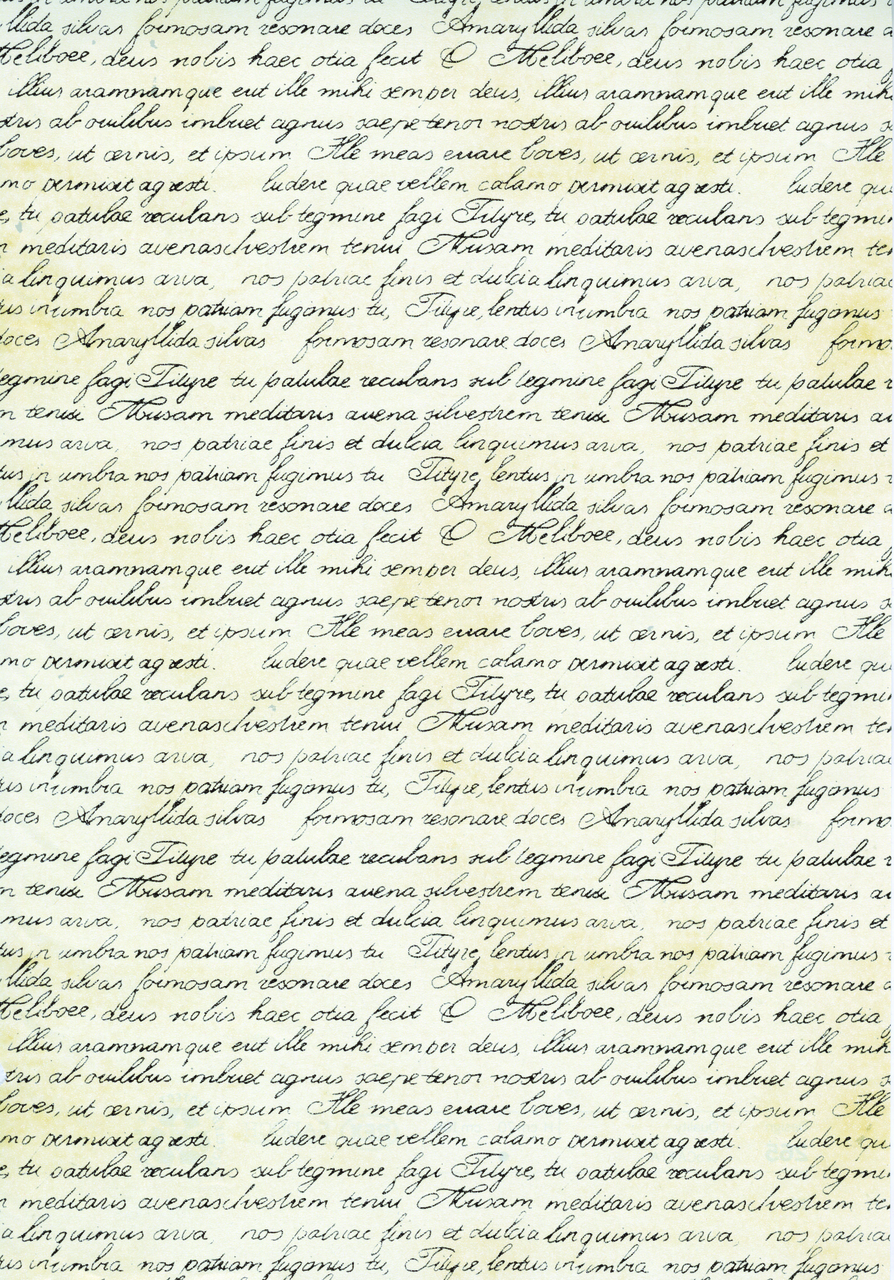 llida silvas formosam resonare doces Amaryllida silvas formosam resonare
Meliboee, deus nobis haec otia fecit O Meliboee, deus nobis haec otia
illius aramnamque erit ille mihi semper deus, illius aramnamque erit ille mih
stris ab ouilibus imbuet agnus saepe tenor nostris ab ouilibus imbuet agnus s
boves, ut cernis, et ipsum Ille meas errare boves, ut cernis, et ipsum Ille
mo permisit agresti. ludere quae vellem calamo permisit agresti. ludere qu
e, tu patulae reculans sub tegmine fagi Tityre, tu patulae reculans sub tegmi
n meditaris avenasilvestrem tenui Musam meditaris avenasilvestrem te
ia linquimus arva, nos patriae finis et dulcia linquimus arva, nos patriae
tus in umbra nos patriam fugamus tu, Tityre, lentus in umbra nos patriam fugamus
doces Amaryllida silvas formosam resonare doces Amaryllida silvas formo
tegmine fagi Tityre tu patulae recubans sub tegmine fagi Tityre tu patulae r
m tenui Musam meditaris avena silvestrem tenui Musam meditaris a
mus arva, nos patriae finis et dulcia linquimus arva, nos patriae finis et
tus in umbra nos patriam fugimus tu Tityre, lentus in umbra nos patriam fugimus
llida silvas formosam resonare doces Amaryllida silvas formosam resonare
Meliboee, deus nobis haec otia fecit O Meliboee, deus nobis haec otia
illius aramnamque erit ille mihi semper deus, illius aramnamque erit ille mih
stris ab ouilibus imbuet agnus saepe tenor nostris ab ouilibus imbuet agnus s
boves, ut cernis, et ipsum Ille meas errare boves, ut cernis, et ipsum Ille
mo permisit agresti. ludere quae vellem calamo permisit agresti. ludere qu
e, tu patulae reculans sub tegmine fagi Tityre, tu patulae reculans sub tegmi
n meditaris avenasilvestrem tenui Musam meditaris avenasilvestrem te
ia linquimus arva, nos patriae finis et dulcia linquimus arva, nos patriae
tus in umbra nos patriam fugamus tu, Tityre, lentus in umbra nos patriam fugamus
doces Amaryllida silvas formosam resonare doces Amaryllida silvas formo
tegmine fagi Tityre tu patulae recubans sub tegmine fagi Tityre tu patulae r
m tenui Musam meditaris avena silvestrem tenui Musam meditaris a
mus arva, nos patriae finis et dulcia linquimus arva, nos patriae finis et
tus in umbra nos patriam fugimus tu Tityre, lentus in umbra nos patriam fugimus
llida silvas formosam resonare doces Amaryllida silvas formosam resonare
Meliboee, deus nobis haec otia fecit O Meliboee, deus nobis haec otia
illius aramnamque erit ille mihi semper deus, illius aramnamque erit ille mih
stris ab ouilibus imbuet agnus saepe tenor nostris ab ouilibus imbuet agnus s
boves, ut cernis, et ipsum Ille meas errare boves, ut cernis, et ipsum Ille
mo permisit agresti. ludere quae vellem calamo permisit agresti. ludere qu
e, tu patulae reculans sub tegmine fagi Tityre, tu patulae reculans sub tegmi
n meditaris avenasilvestrem tenui Musam meditaris avenasilvestrem te
ia linquimus arva, nos patriae finis et dulcia linquimus arva, nos patriae
tus in umbra nos patriam fugamus tu, Tityre, lentus in umbra nos patriam fugamus